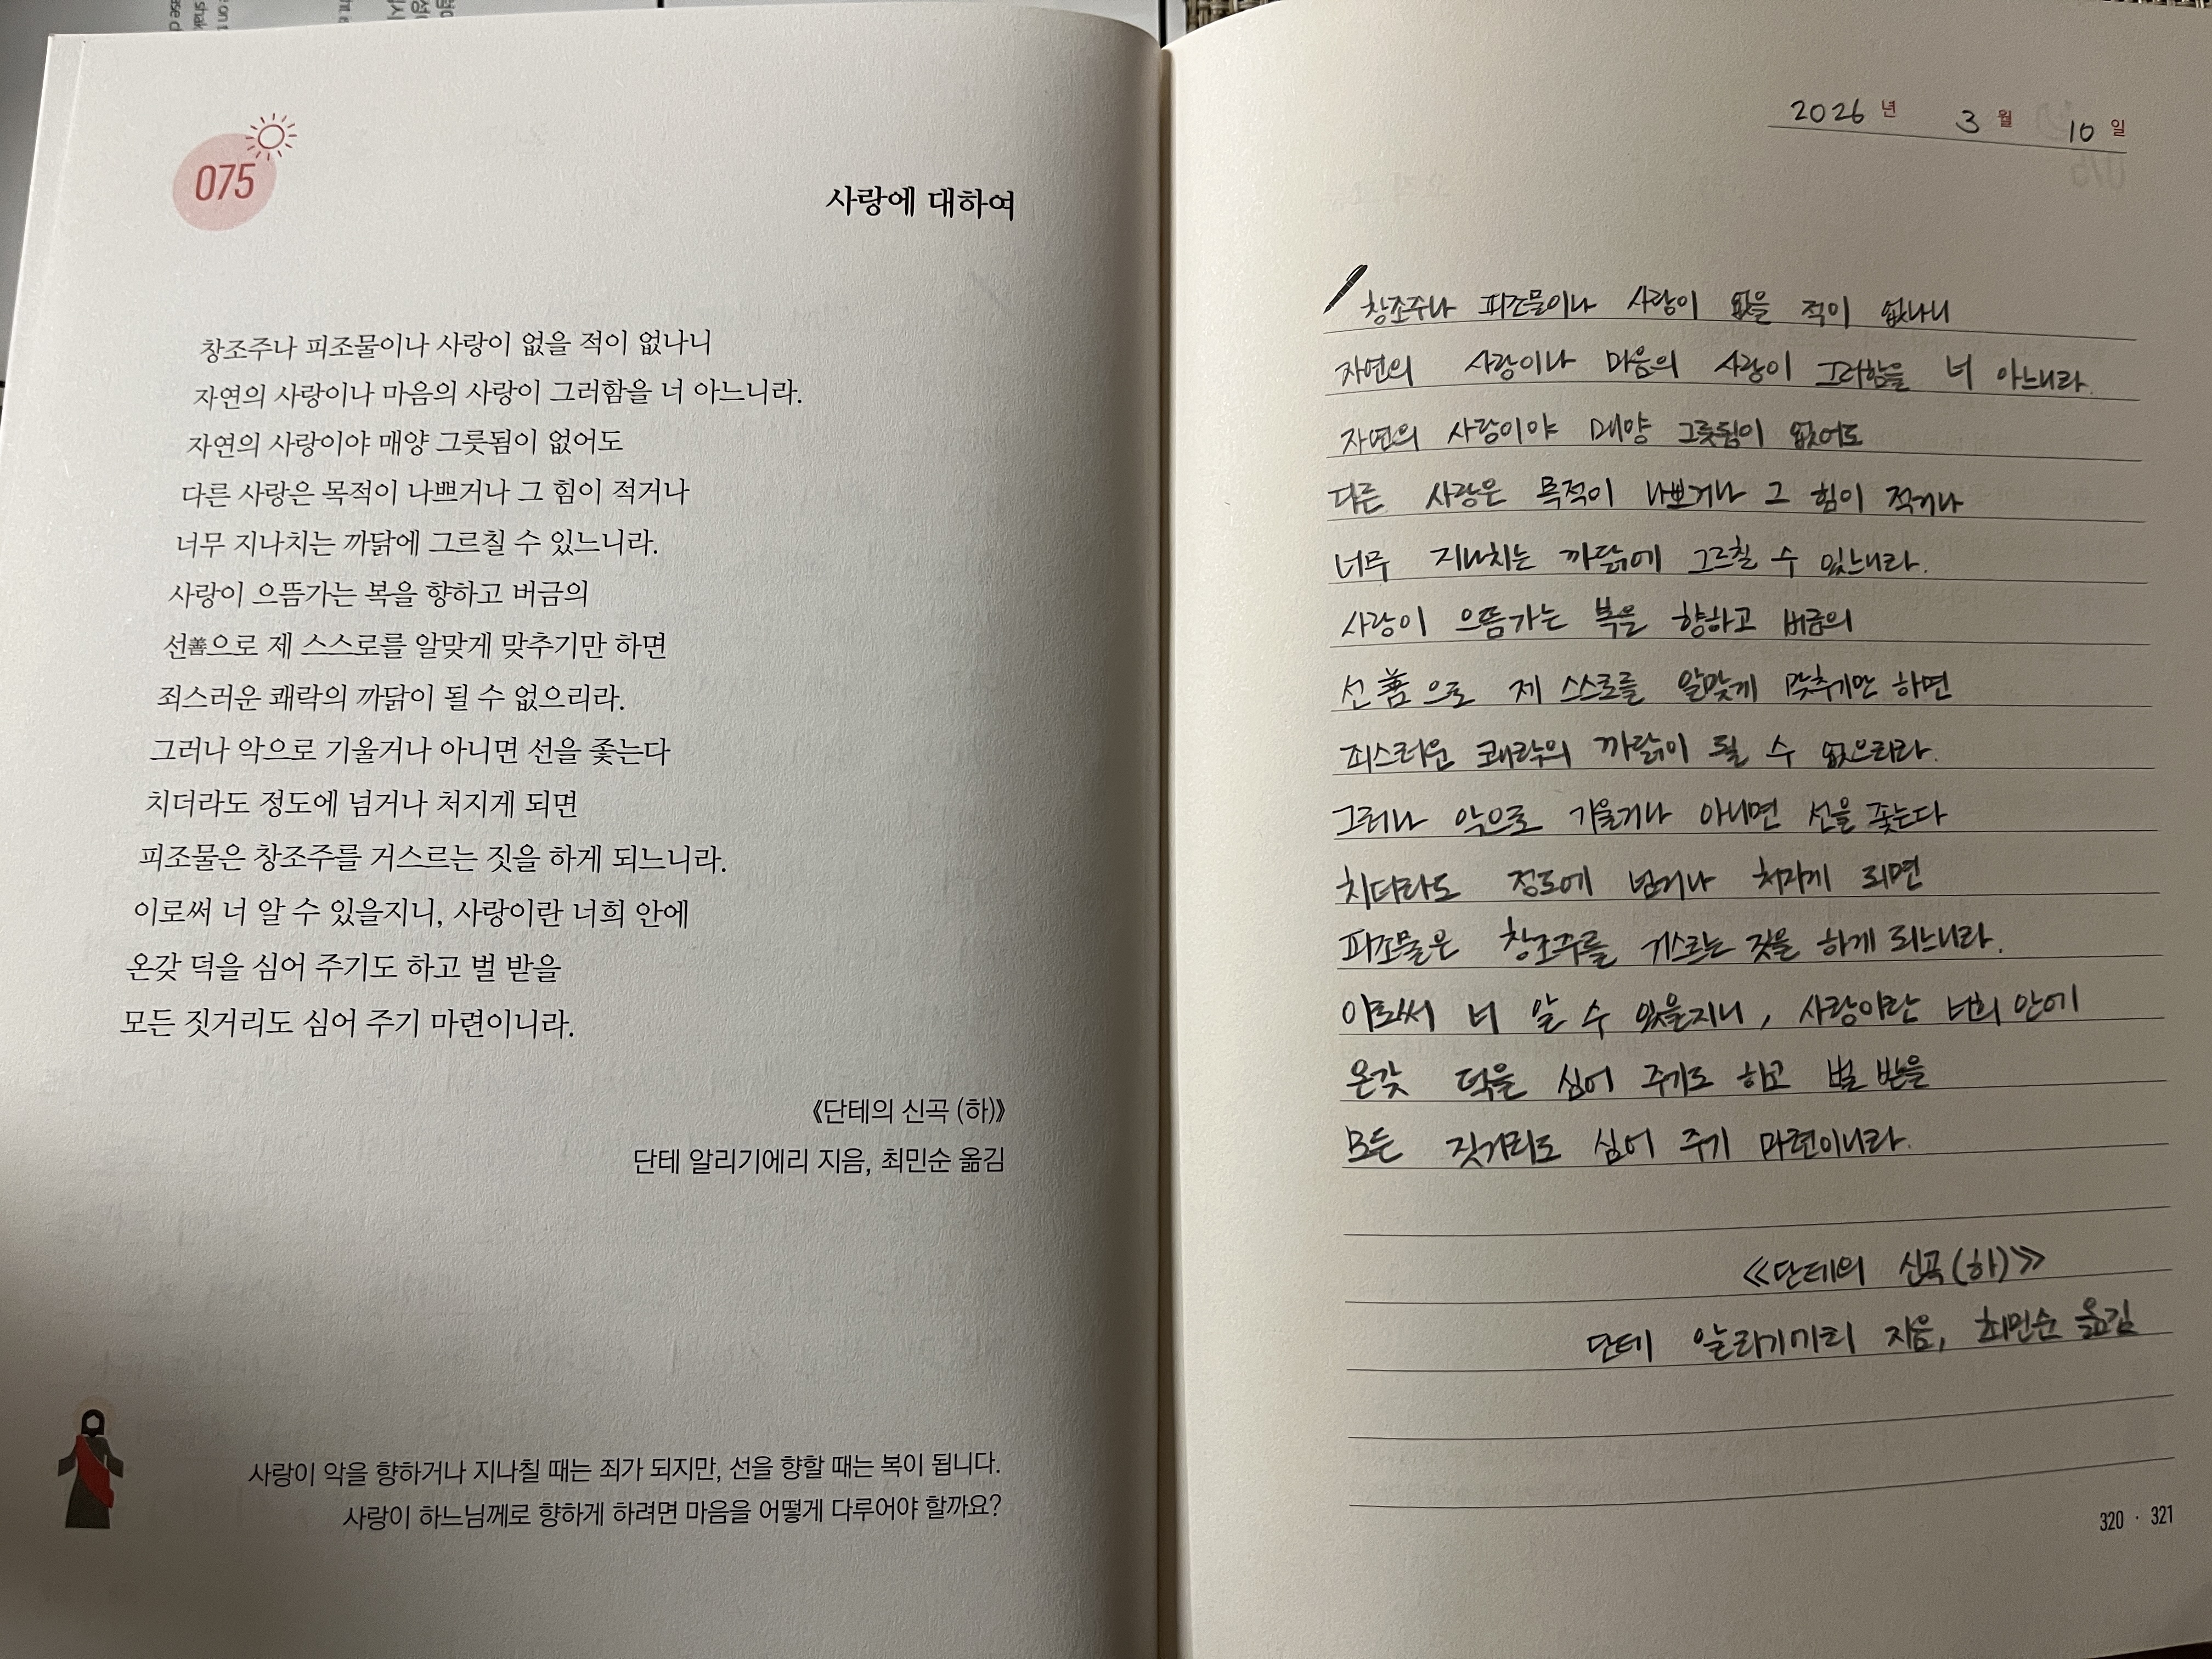 075
사랑에 대하여
창조주나 피조물이나 사랑이 없을 적이 없나니
자연의 사랑이나 마음의 사랑이 그러함을 너 아느니라.
자연의 사랑이야 매양 그릇됨이 없어도
다른 사랑은 목적이 나쁘거나 그 힘이 적거나
너무 지나치는 까닭에 그르칠 수 있느니라.
사랑이 으뜸가는 복을 향하고 버금의
선善으로 제 스스로를 알맞게 맞추기만 하면
죄스러운 쾌락의 까닭이 될 수 없으리라.
그러나 악으로 기울거나 아니면 선을 좇는다
치더라도 정도에 넘거나 처지게 되면
피조물은 창조주를 거스르는 짓을 하게 되느니라.
이로써 너 알 수 있을지니, 사랑이란 너희 안에
온갖 덕을 심어 주기도 하고 벌 받을
모든 짓거리도 심어 주기 마련이니라.
《단테의 신곡 (하)》
단테 알리기에리 지음, 최민순 옮김
사랑이 악을 향하거나 지나칠 때는 죄가 되지만, 선을 향할 때는 복이 됩니다.
사랑이 하느님께로 향하게 하려면 마음을 어떻게 다루어야 할까요?
2026 년 3 월 10 일
창조주나 피조물이나 사랑이 없을 적이 없나니
자연의 사랑이나 마음의 사랑이 그러함을 너 아느니라.
자연의 사랑이야 매양 그릇됨이 없어도
다른 사랑은 목적이 나쁘거나 그 힘이 적거나
너무 지나치는 까닭에 그르칠 수 있느니라.
사랑이 으뜸가는 복을 향하고 버금의
선善으로 제 스스로를 알맞게 맞추기만 하면
죄스러운 쾌락의 까닭이 될 수 없으리라.
그러나 악으로 기울거나 아니면 선을 좇는다
치더라도 정도에 넘거나 처지게 되면
피조물은 창조주를 거스르는 짓을 하게 되느니라.
이로써 너 알 수 있을지니, 사랑이란 너희 안에
온갖 덕을 심어 주기도 하고 벌 받을
모든 짓거리도 심어 주기 마련이니라.
《단테의 신곡(하)》
단테 지음, 최민순 옮김
320 · 321